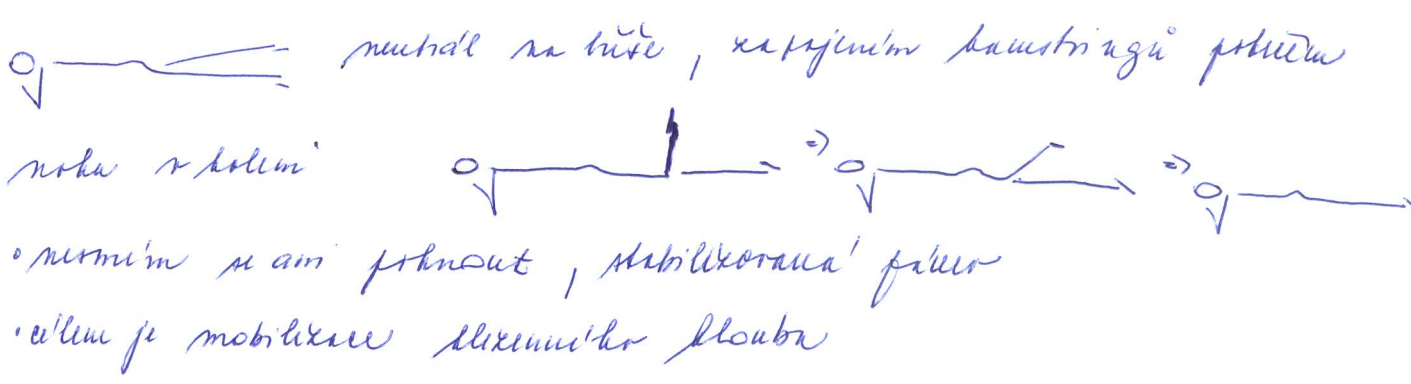 neutrál na bříše, zapojením hamstringů pokrčím
nohu v koleni => =>
• nesmím se ani pohnout, stabilizovaná pánev
• cílem je mobilizace kyčelního kloubu